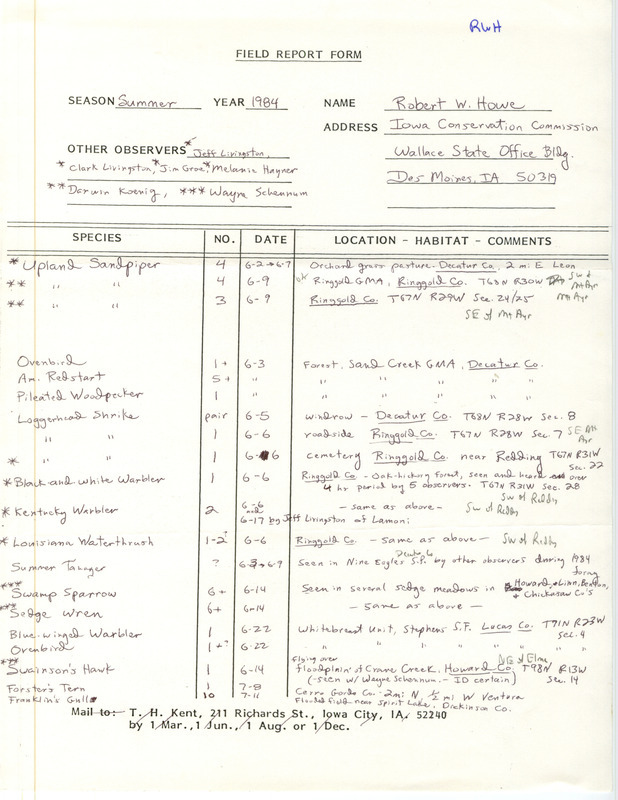 RWH
FIELD REPORT FORM
SEASON Summer YEAR 1984 NAME Robert W. Howe
ADDRESS Iowa Conservation Commission
OTHER OBSERVERS * Jeff Livingston, Wallace State Office Bldg.
* Clark Livingston, * Jim Groe, * Melanie Hayner Des Moines, IA 50319
** Darwin Koenig, *** Wayne Schennum
SPECIES NO. DATE LOCATION - HABITAT - COMMENTS
* Upland Sandpiper 4 6-2→6-7 Orchard grass pasture - Decatur Co, 2 mi E Leon
** " " 4 6-9 Ringgold GMA, Ringgold Co. T68N R30W SW of Mt Ayr
** " " 3 6-9 Ringgold Co. T67N R29W Sec. 24/25 Mt Ayr
SE of Mt Ayr
Ovenbird 1+ 6-3 Forest, Sand Creek GMA, Decatur Co.
Am. Redstart 5+ " " " " "
Pileated Woodpecker 1 " " " " "
Loggerhead Shrike pair 6-5 windrow - Decatur Co. T68N R28W Sec. 8
" " 1 6-6 roadside Ringgold Co. T67N R28W Sec. 7 SE Mt Ayr
* " " 1 6-6 cemetery Ringgold Co. near Redding T67N R31W Sec. 22
* Black-and-white Warbler 1 6-6 Ringgold Co. - Oak-hickory forest, seen and heard over
4 hr period by 5 observers. T67N R31W Sec. 28
* Kentucky Warbler 2 6-6 and - same as above - SW of Reddg
6-17 by Jeff Livingston of Lamoni SW of Reddg
* Louisiana Waterthrush 1-2? 6-6 Ringgold Co. - same as above - SW of Reddg
Summer Tanager ? 6-3→6-9 Seen in Nine Eagles S.P. Decatur Co by other observers during 1984 foray
*** Swamp Sparrow 6+ 6-14 Seen in several sedge meadows in Howard, Linn, Benton, & Chickasaw Co's
*** Sedge Wren 6+ 6-14 - same as above -
Blue-winged Warbler 1 6-22 Whitebreast Unit, Stephens S.F. Lucas Co. T71N R23W Sec. 4
Ovenbird 1+? 6-22 " " " " "
*** Swainson's Hawk 1 6-14 flying over floodplain of Crane Creek, Howard Co. T98N R13W Sec. 14 NE of Elma
(-seen w/ Wayne Schennum - ID certain)
Forster's Tern 1 7-8 Cerro Gordo Co. - 2 mi N, ½ mi W Ventura
Franklin's Gull 10 7-11 Flooded field near Spirit Lake, Dickinson Co.
Mail to: T. H. Kent, 211 Richards St., Iowa City, IA. 52240
by 1 Mar., 1 Jun., 1 Aug. or 1 Dec.